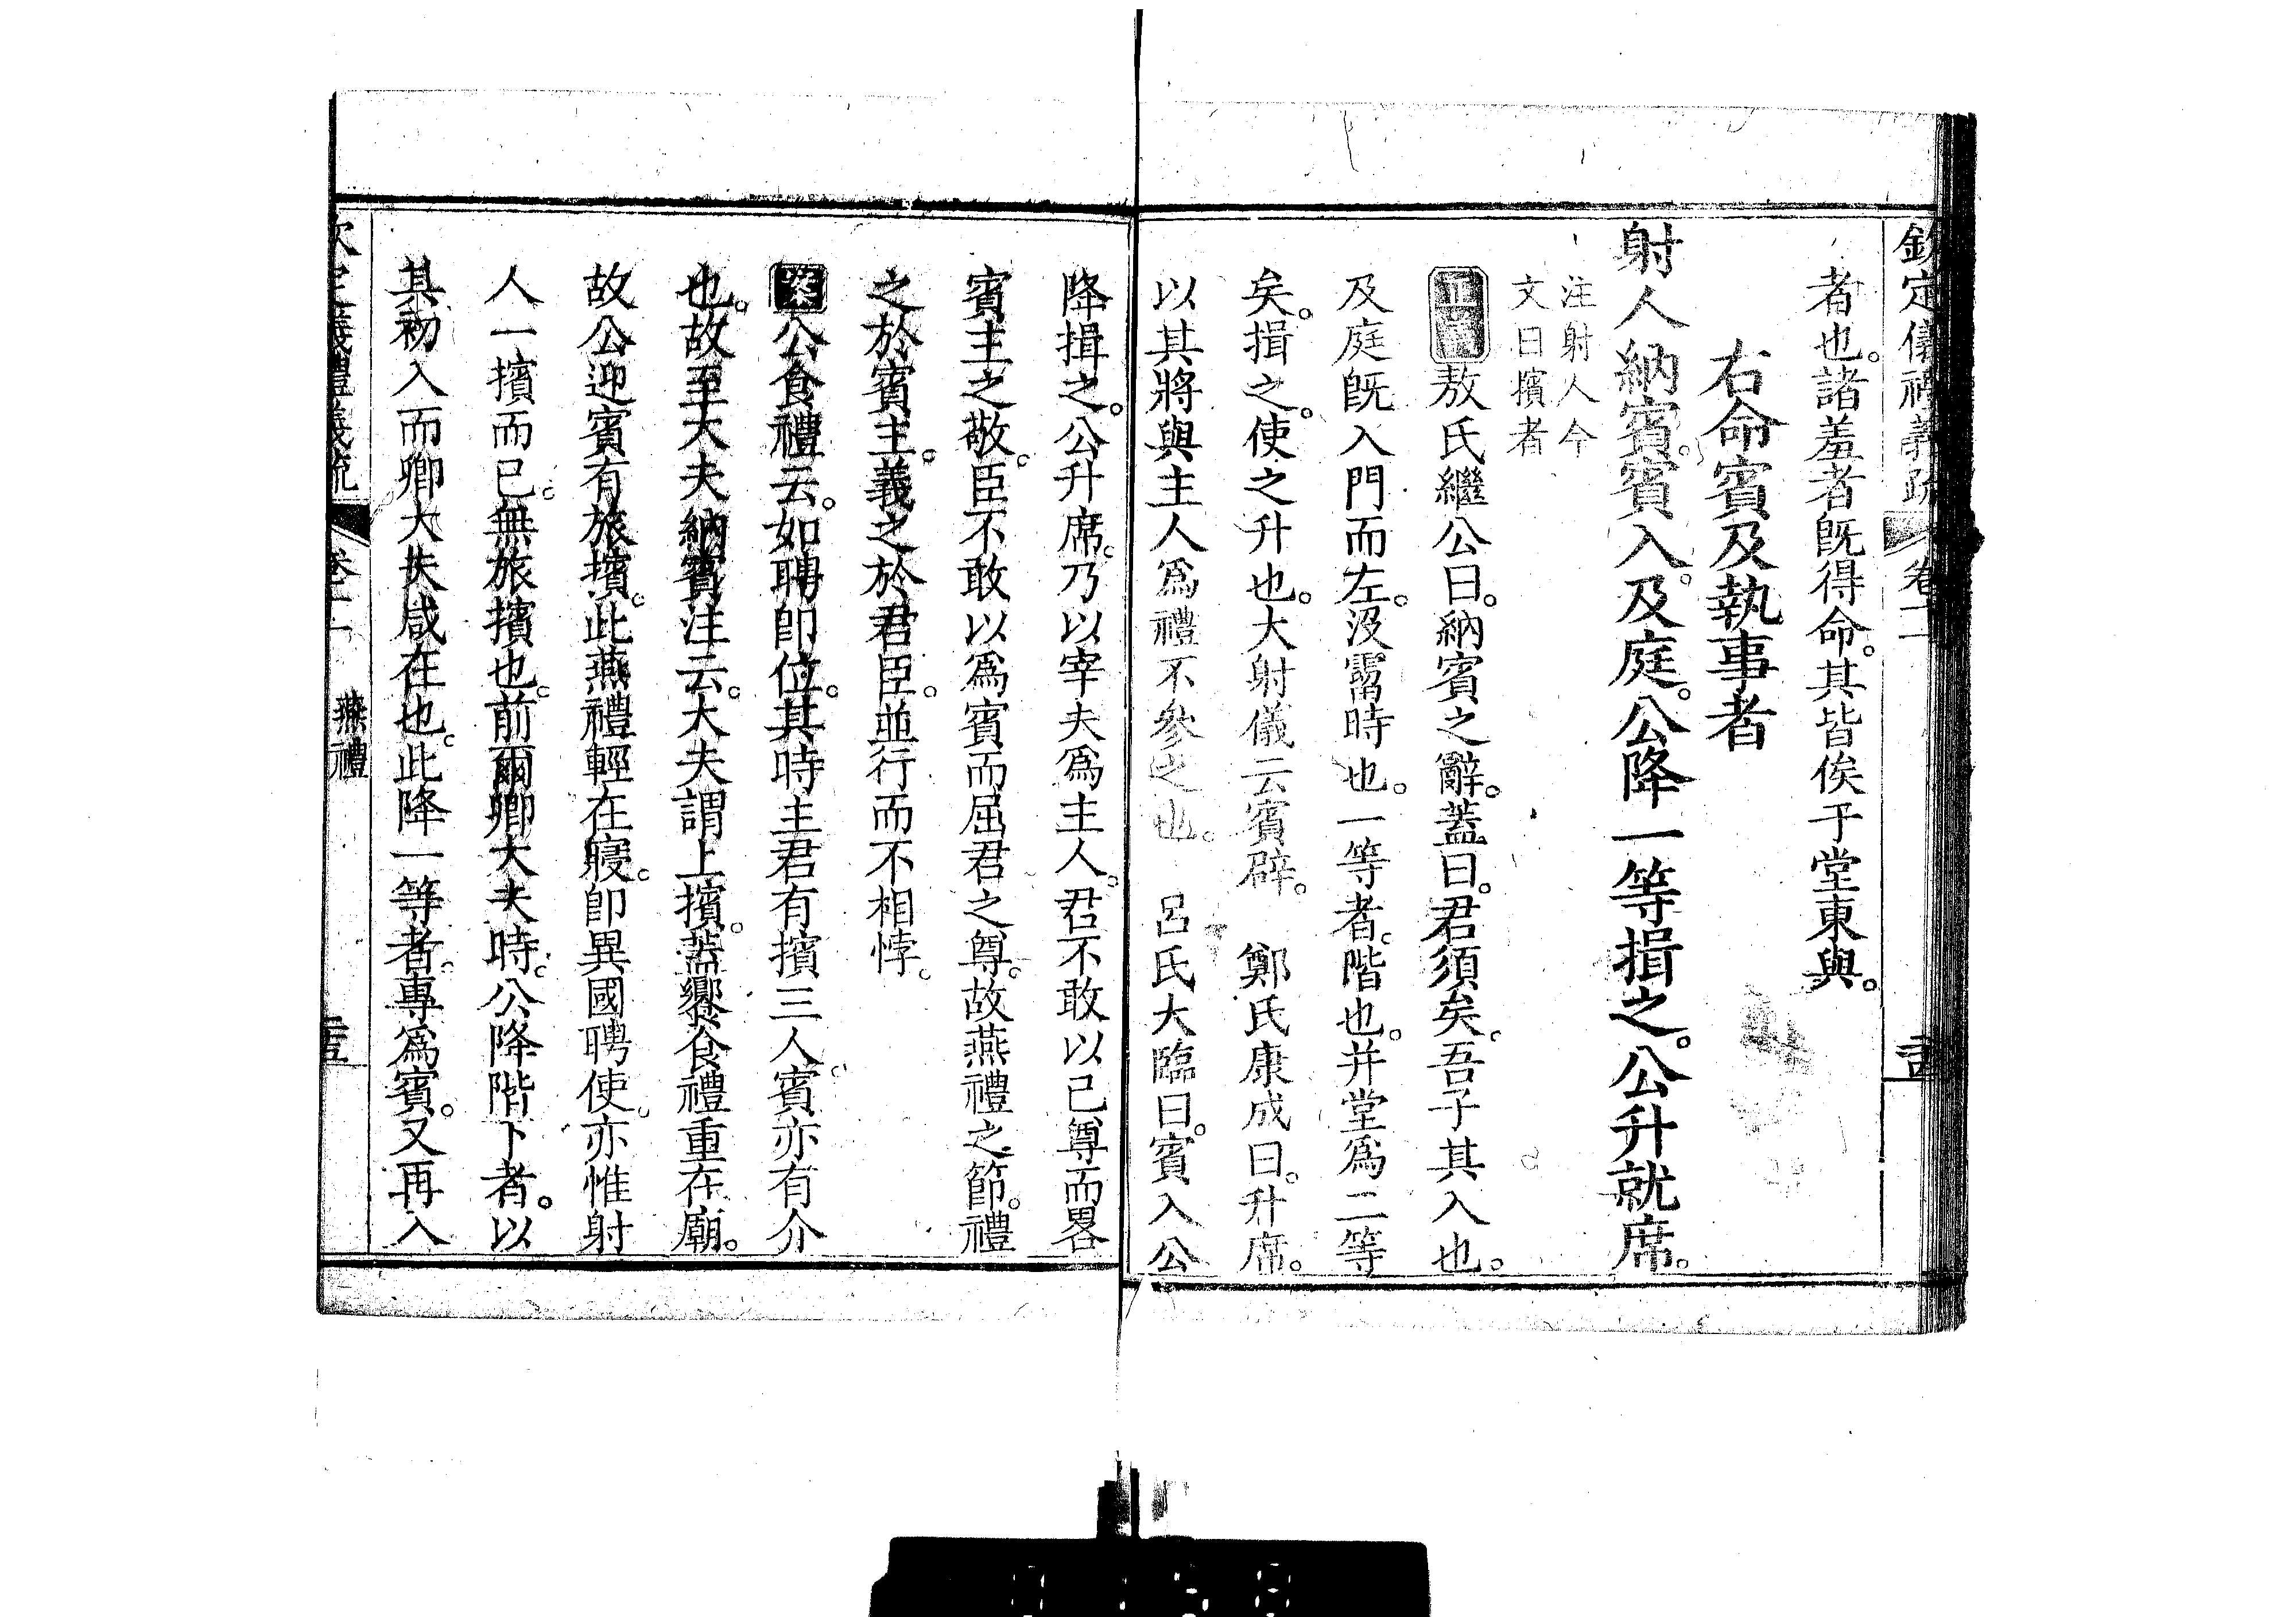 欽定儀禮義疏 卷十一
者也。諸羞者旣得命。其皆俟于堂東與。
右命賓及執事者
射人納賓。賓入。及庭。公降一等揖之。公升就席。
注射人今
文曰擯者
正義敖氏繼公曰。納賓之辭。蓋曰。君須矣。吾子其入也。
及庭旣入門而左。沒霤時也。一等者。階也。并堂爲二等
矣。揖之。使之升也。大射儀云賓辟。 鄭氏康成曰。升席。
以其將與主人爲禮不參之也。 呂氏大臨曰。賓入公
降揖之。公升席。乃以宰夫爲主人。君不敢以己尊而畧
賓主之敬。臣不敢以爲賓而屈君之尊。故燕禮之節。禮
之於賓主。義之於君臣。並行而不相悖。
案公食禮云。如聘卽位。其時主君有擯三人。賓亦有介
也。故至大夫納賓注云。大夫謂上擯。蓋饗食禮重在廟。
故公迎賓有旅擯。此燕禮輕在寢。卽異國聘使。亦惟射
人一擯而已。無旅擯也。前爾卿大夫時。公降階下者。以
其初入而卿大夫咸在也。此降一等者。專爲賓。又再入
燕禮